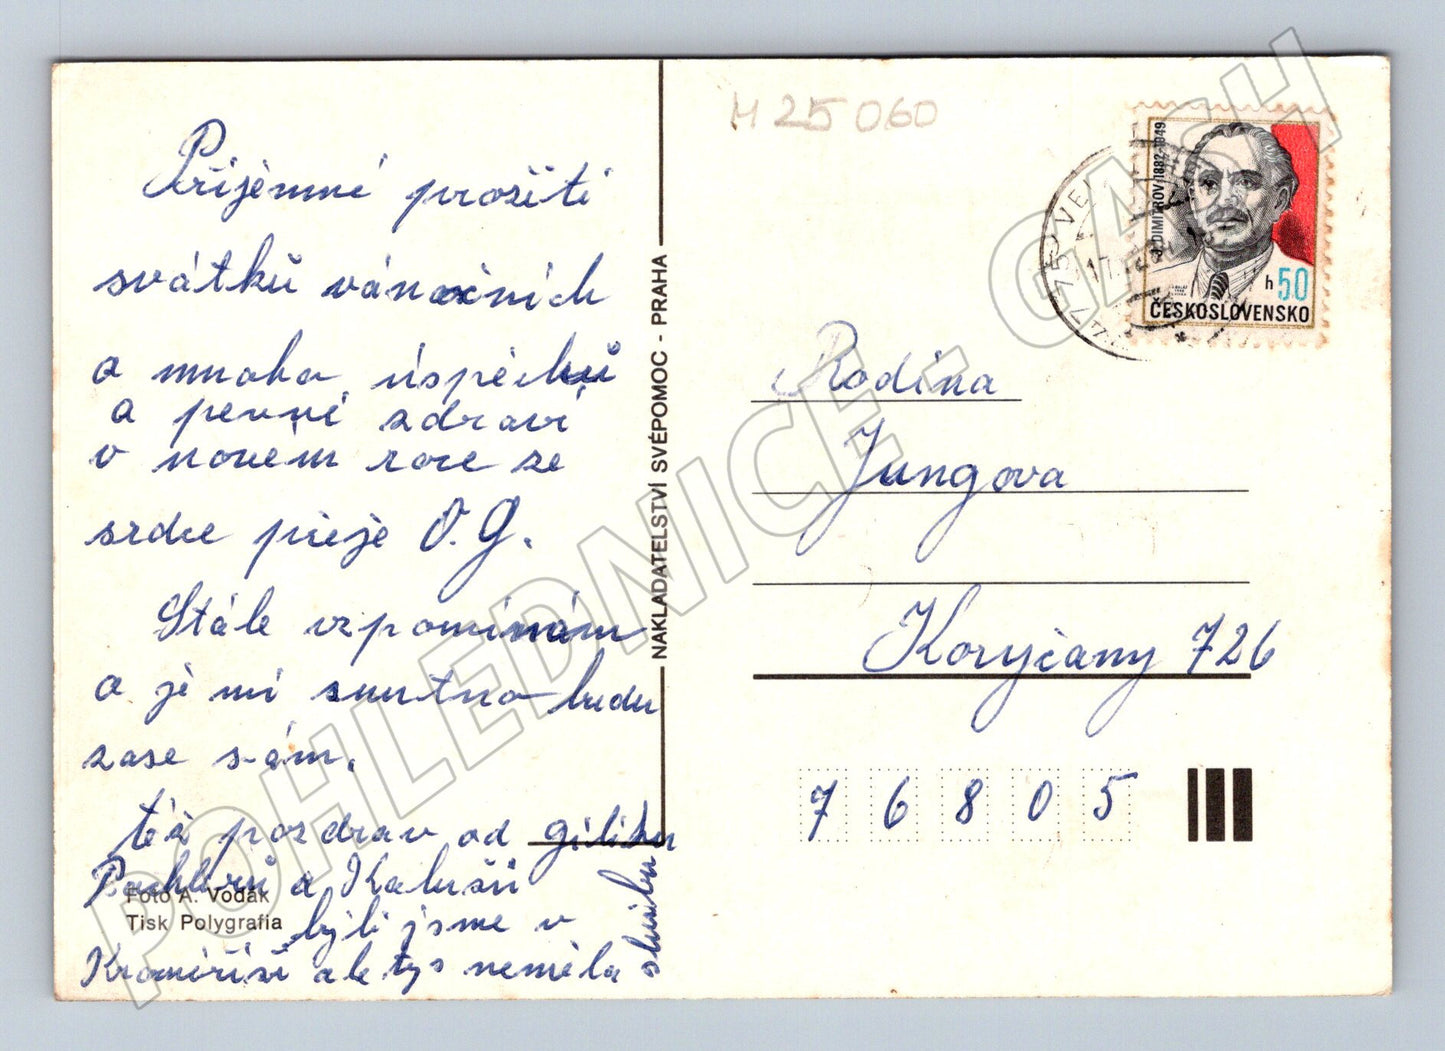 Příjemné prožití
svátků vánočních
a mnoho úspěchů
a pevné zdraví
v novém roce ze
srdce přeje O. G.
Stále vzpomínám
a je mi smutno budu
zase sám.
též pozdrav od
a Kalusů
byli jsme v
Kroměříži ale tys neměla
službu
Foto A. Vodák
Tisk Polygrafia
NAKLADATELSTVÍ SVÉPOMOC - PRAHA
M 25 060
J. DIMITROV 1882-1949
h 50
ČESKOSLOVENSKO
Rodina
Jungova
Koryčany 726
7 6 8 0 5
POHLEDNICE - GASH